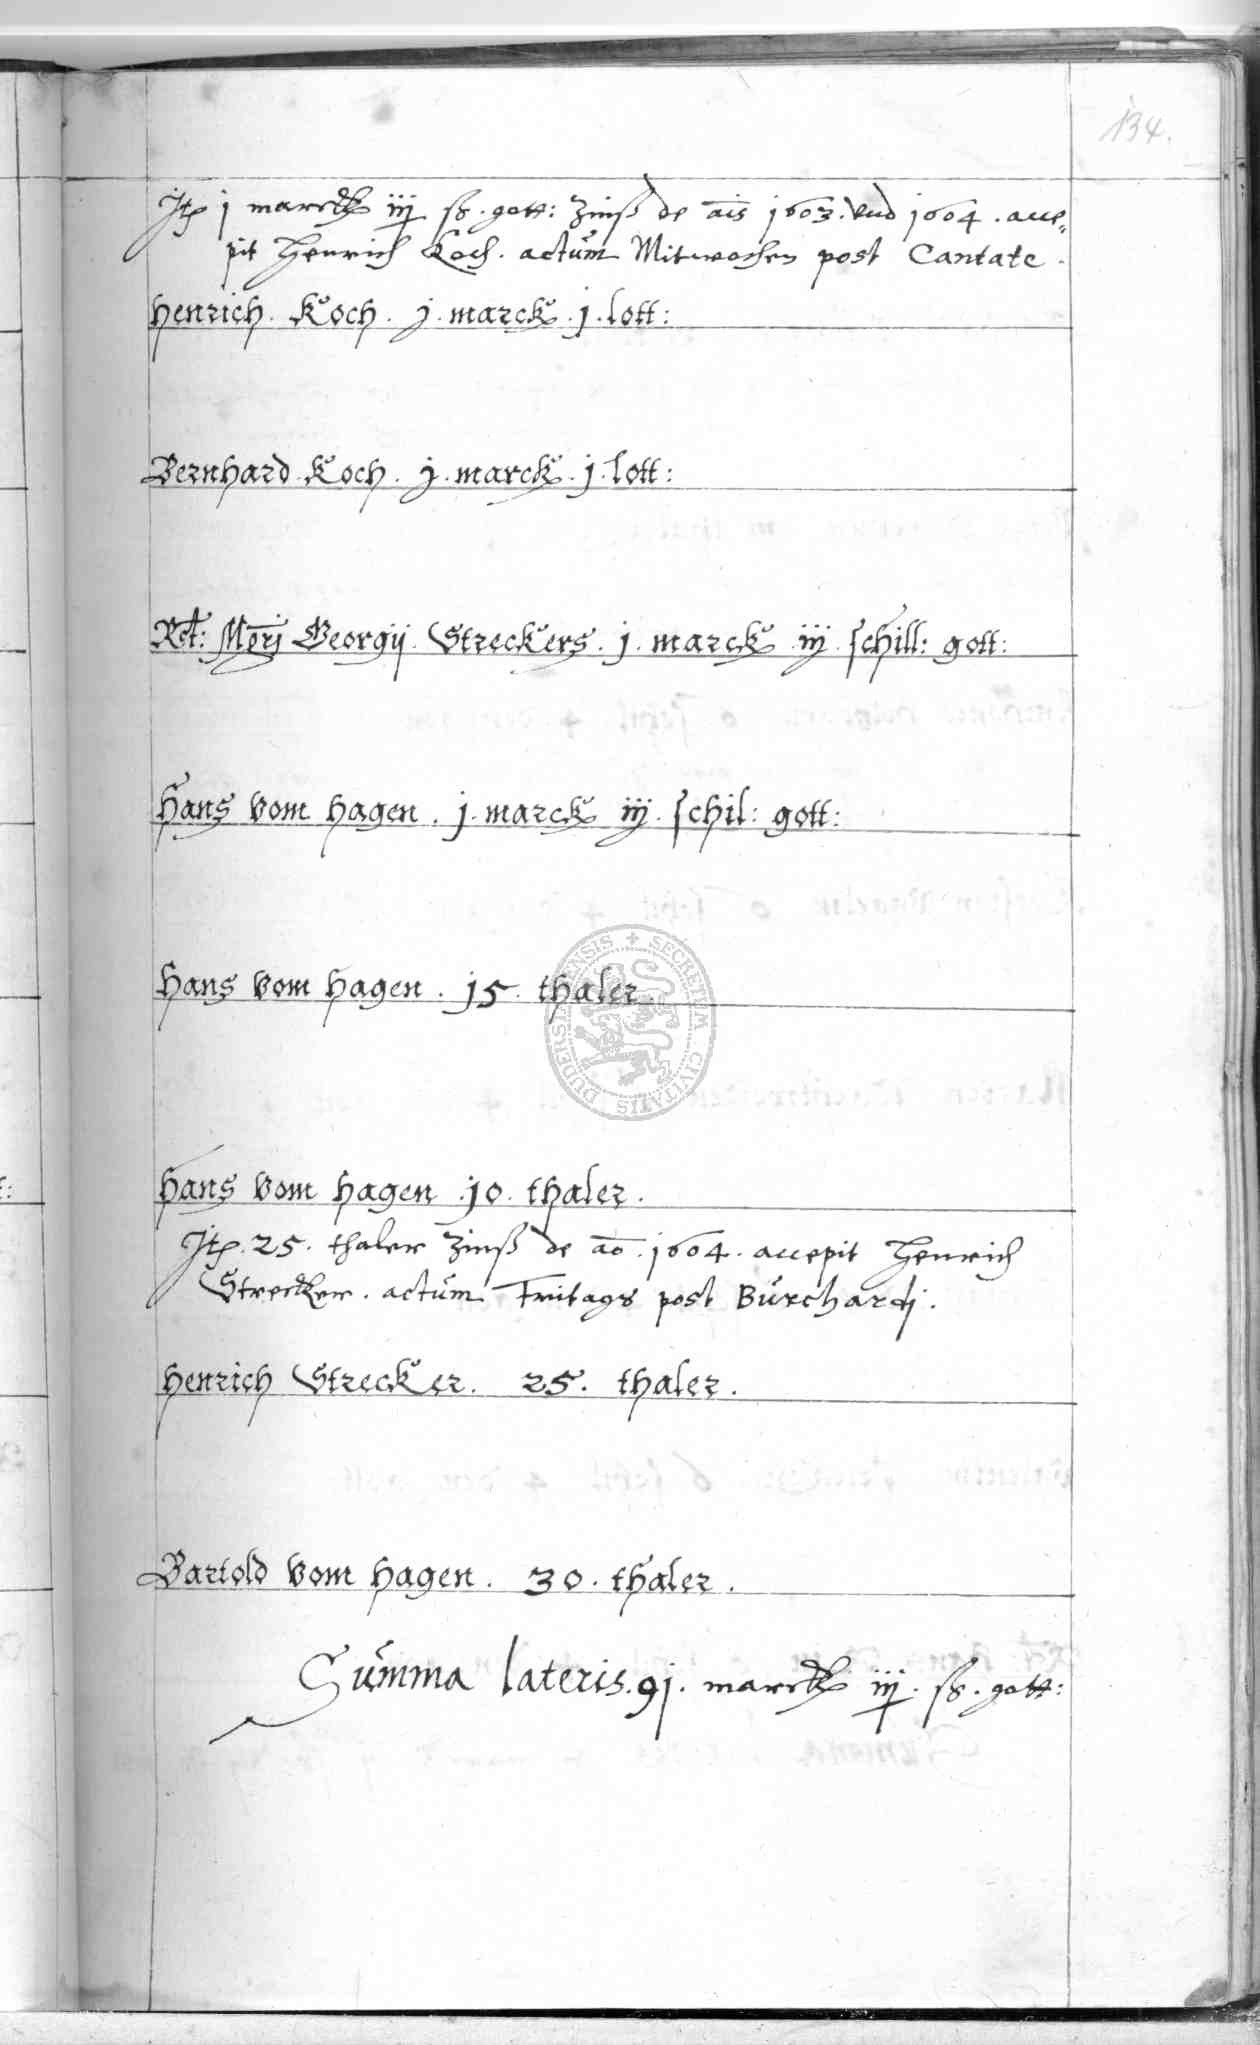 134.
Itē j marck iij ß. gott: Zinß de ais 1603. vnd 1604. acce„
pit Henrich Koch. actum Mitwochen post Cantate.
Henrich. Koch. j. marck. j. lott:
Bernhard Koch. j. marck. j. lott:
Rct: Mgrj Georgij. Streckers. j. marck iij. schill: gott:
Hans vom Hagen. j. marck iij. schil: gott:
Hans vom Hagen. 15. thaler
SECRETUM CIVITATIS DUDERS ENSIS
Hans vom Hagen .10. thaler.
Itē. 25. thaler Zinß de ao. 1604. accepit Henrich
Strecker. actum Fritags post Burchardj.
Henrich Strecker. 25. thaler.
Bartold vom Hagen. 30. thaler.
Summa lateris. 91. marck iij. ß. gott: